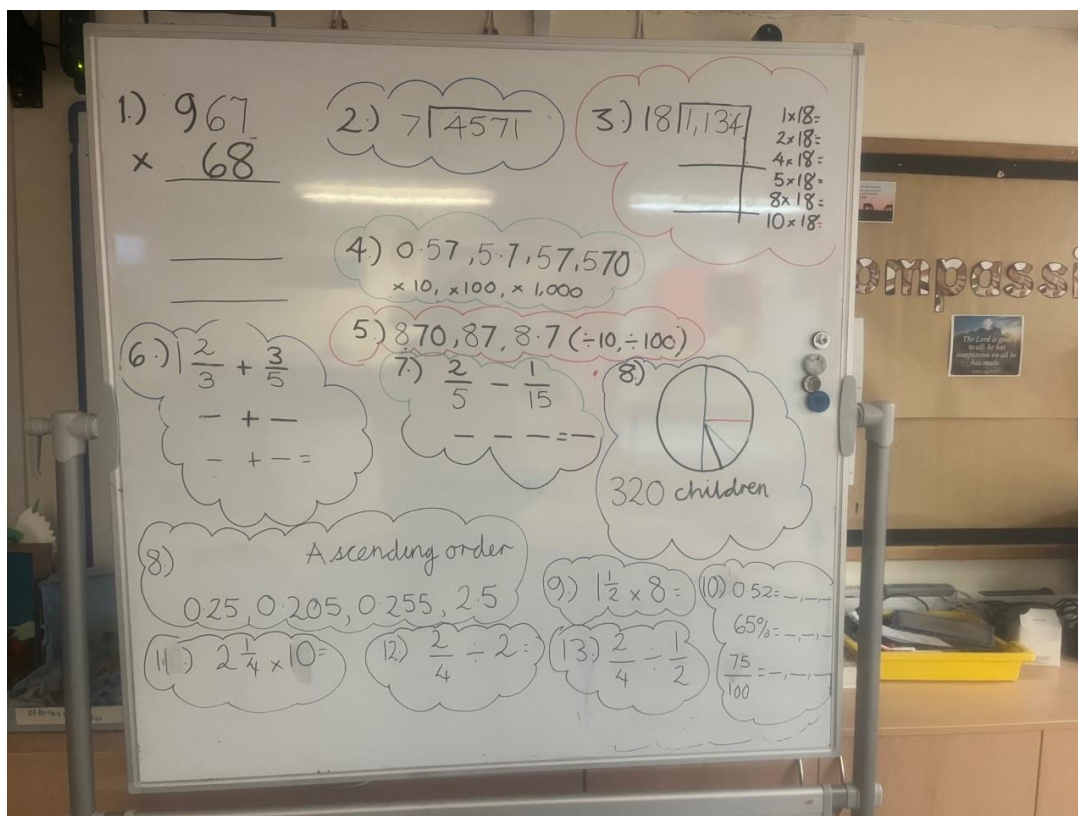 1.) 967
× 68
2.) 7 4571
3.) 18 1,134
1×18=
2×18=
4×18=
5×18=
8×18=
10×18=
4.) 0.57, 5.7, 57, 570
×10, ×100, ×1,000
5.) 870, 87, 8.7 (÷10, ÷100)
6.) 1 2/3 + 3/5
— + —
— + — =
7.) 2/5 − 1/15
— — — = —
8.)
320 children
8.) Ascending order
0.25, 0.205, 0.255, 2.5
9.) 1 1/2 × 8 =
10.) 0.52 = _, _, _
65% = _, _, _
75/100 = _, _, _
11.) 2 1/4 × 10 =
12.) 2/4 ÷ 2 =
13.) 2/4 ÷ 1/2
ompassi
The Lord is good
to all; he has
compassion on all he
has made.